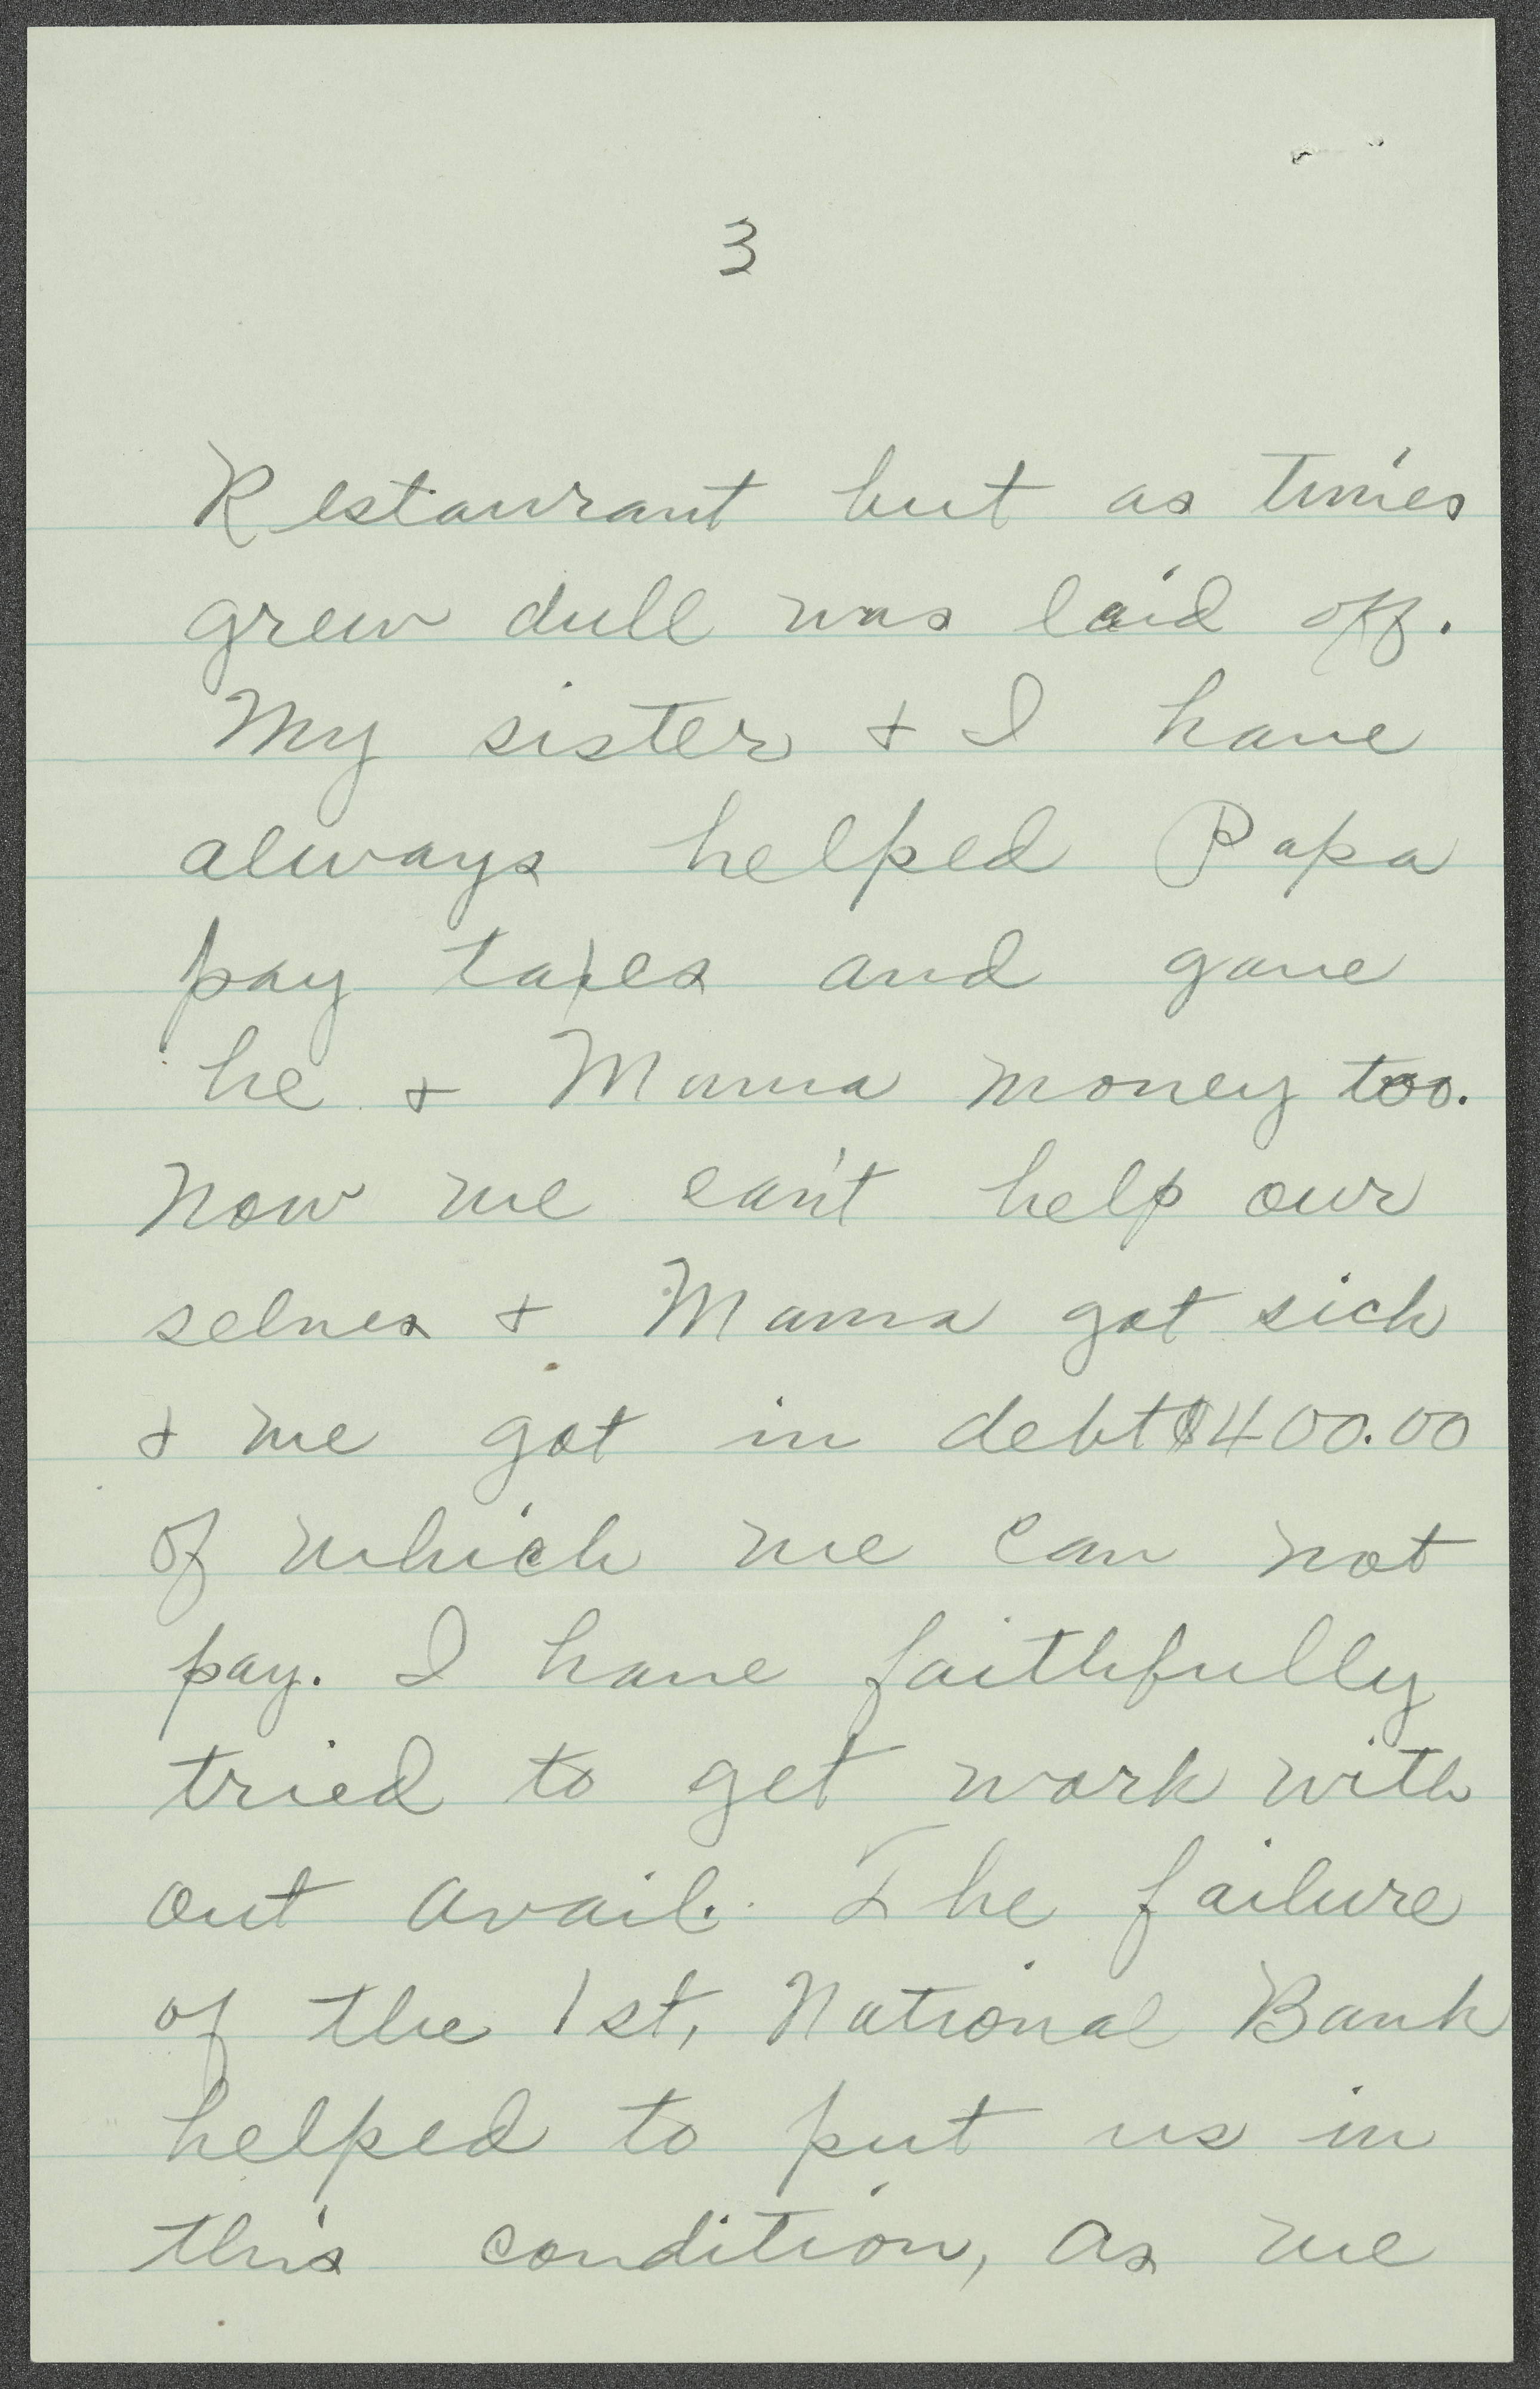 3
Restaurant but as times
grew dull was laid off.
My sister + I have
always helped Papa
pay taxes and gave
he + Mama money too.
Now we can't help our
selves + Mama got sick
+ we got in debt $400.00
of which we can not
pay. I have faithfully
tried to get work with
out avail. The failure
of the 1st, National Bank
helped to put us in
this condition, as we